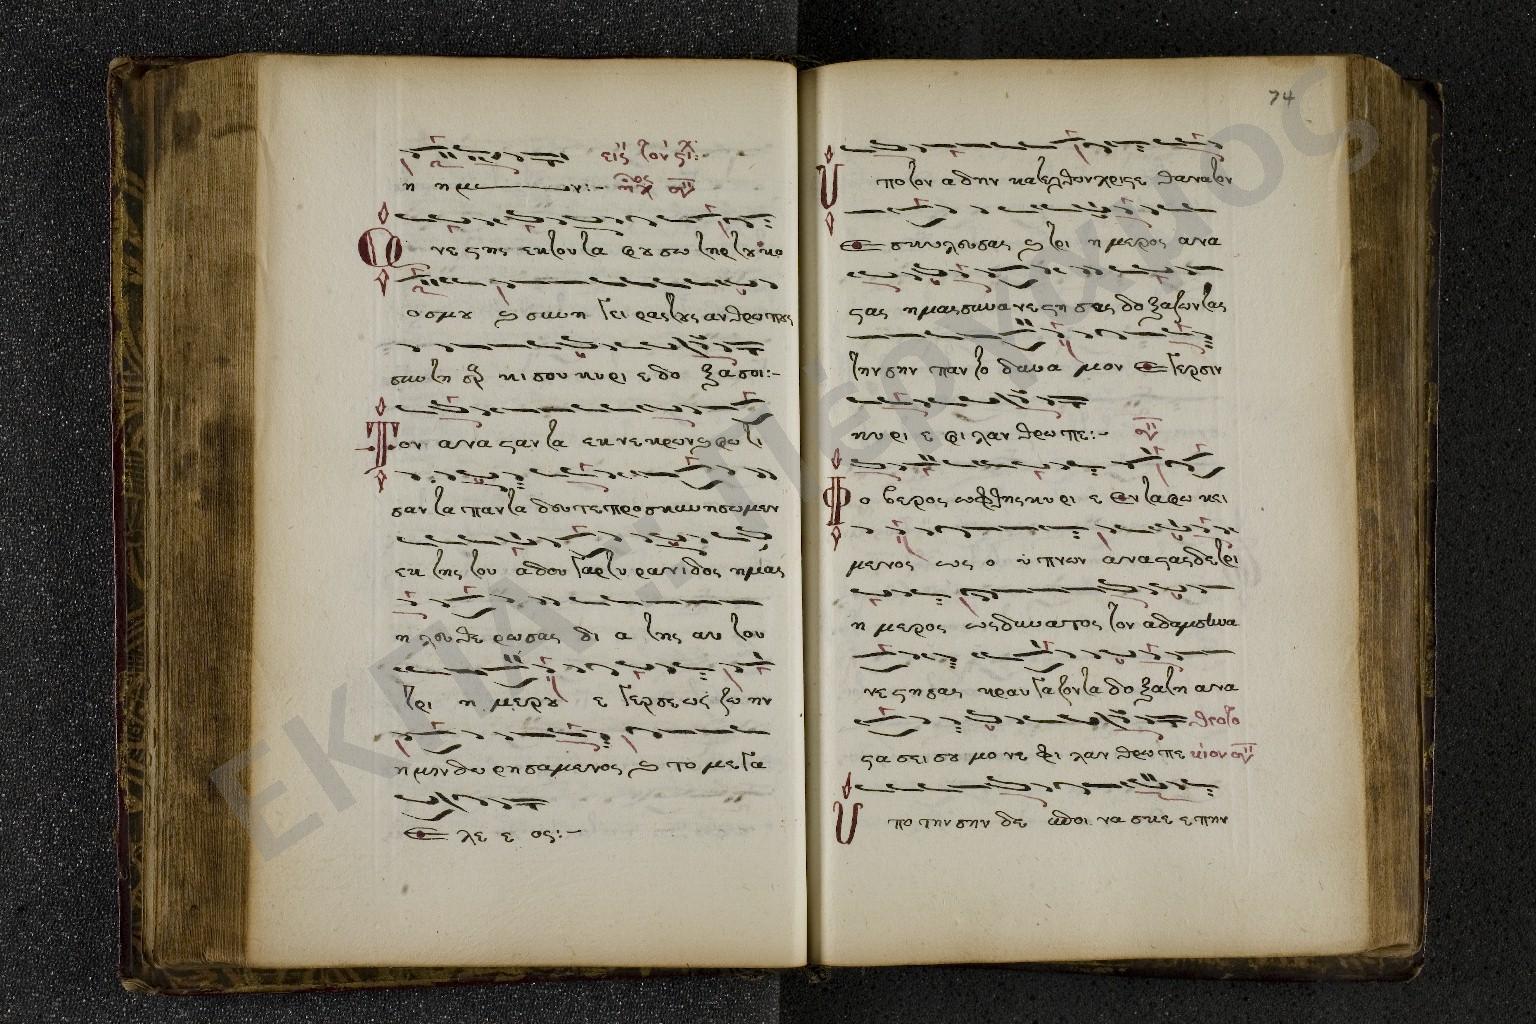 εἰς τὸν στί:
η ημων:- ἦχος
νε στης εκ του τα φου σω τηρ του κο
ο σμου ϗ συνη γει ρας τους ανθρωπους
συν τη σαρ κι σου κυ ρι ε δο ξα σοι:-
Τον ανα σταν τα εκ νε κρων ϗ φω τι
σαν τα παν τα δευ τε προ σκυ νησωμεν
εκ της του αδου γαρ τυ ραν ι δος ημας
η λευ θε ρω σας δι α της αυ του
τρι η μερου ε γερσεως ζω ην
ημιν δω ρησαμενος ϗ το μεγα
Ε λε ε ος:-
74
Υ πο τον α δην κατελθων χριστε θανατον
Ε σκυλευσας ϗ τρι ημερος ανα
στας ημας συν ανεστη σας δο ξαζοντας
την σην παν το δυνα μον Ε γερσιν
κυ ρι ε φι λαν θρω πε:-
Φ ο βερος ωφθης κυ ρι ε Εν ταφω κει
μενος ως ο υπνων αναστας δε τρι
η μερος ως δυνατος τον αδαμ συνα
νε στησας κραυ γαζοντα δο ξα τη ανα
θεοτο
στα σει σου μο νε φι λαν θρω πε κίον
Υ πο την σην δε